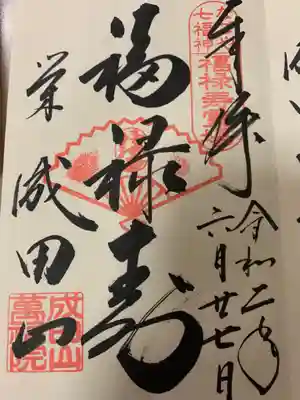 奉拝
令和二年
六月廿七日
七福神
福禄寿
栄 成田山
成田山
萬福院